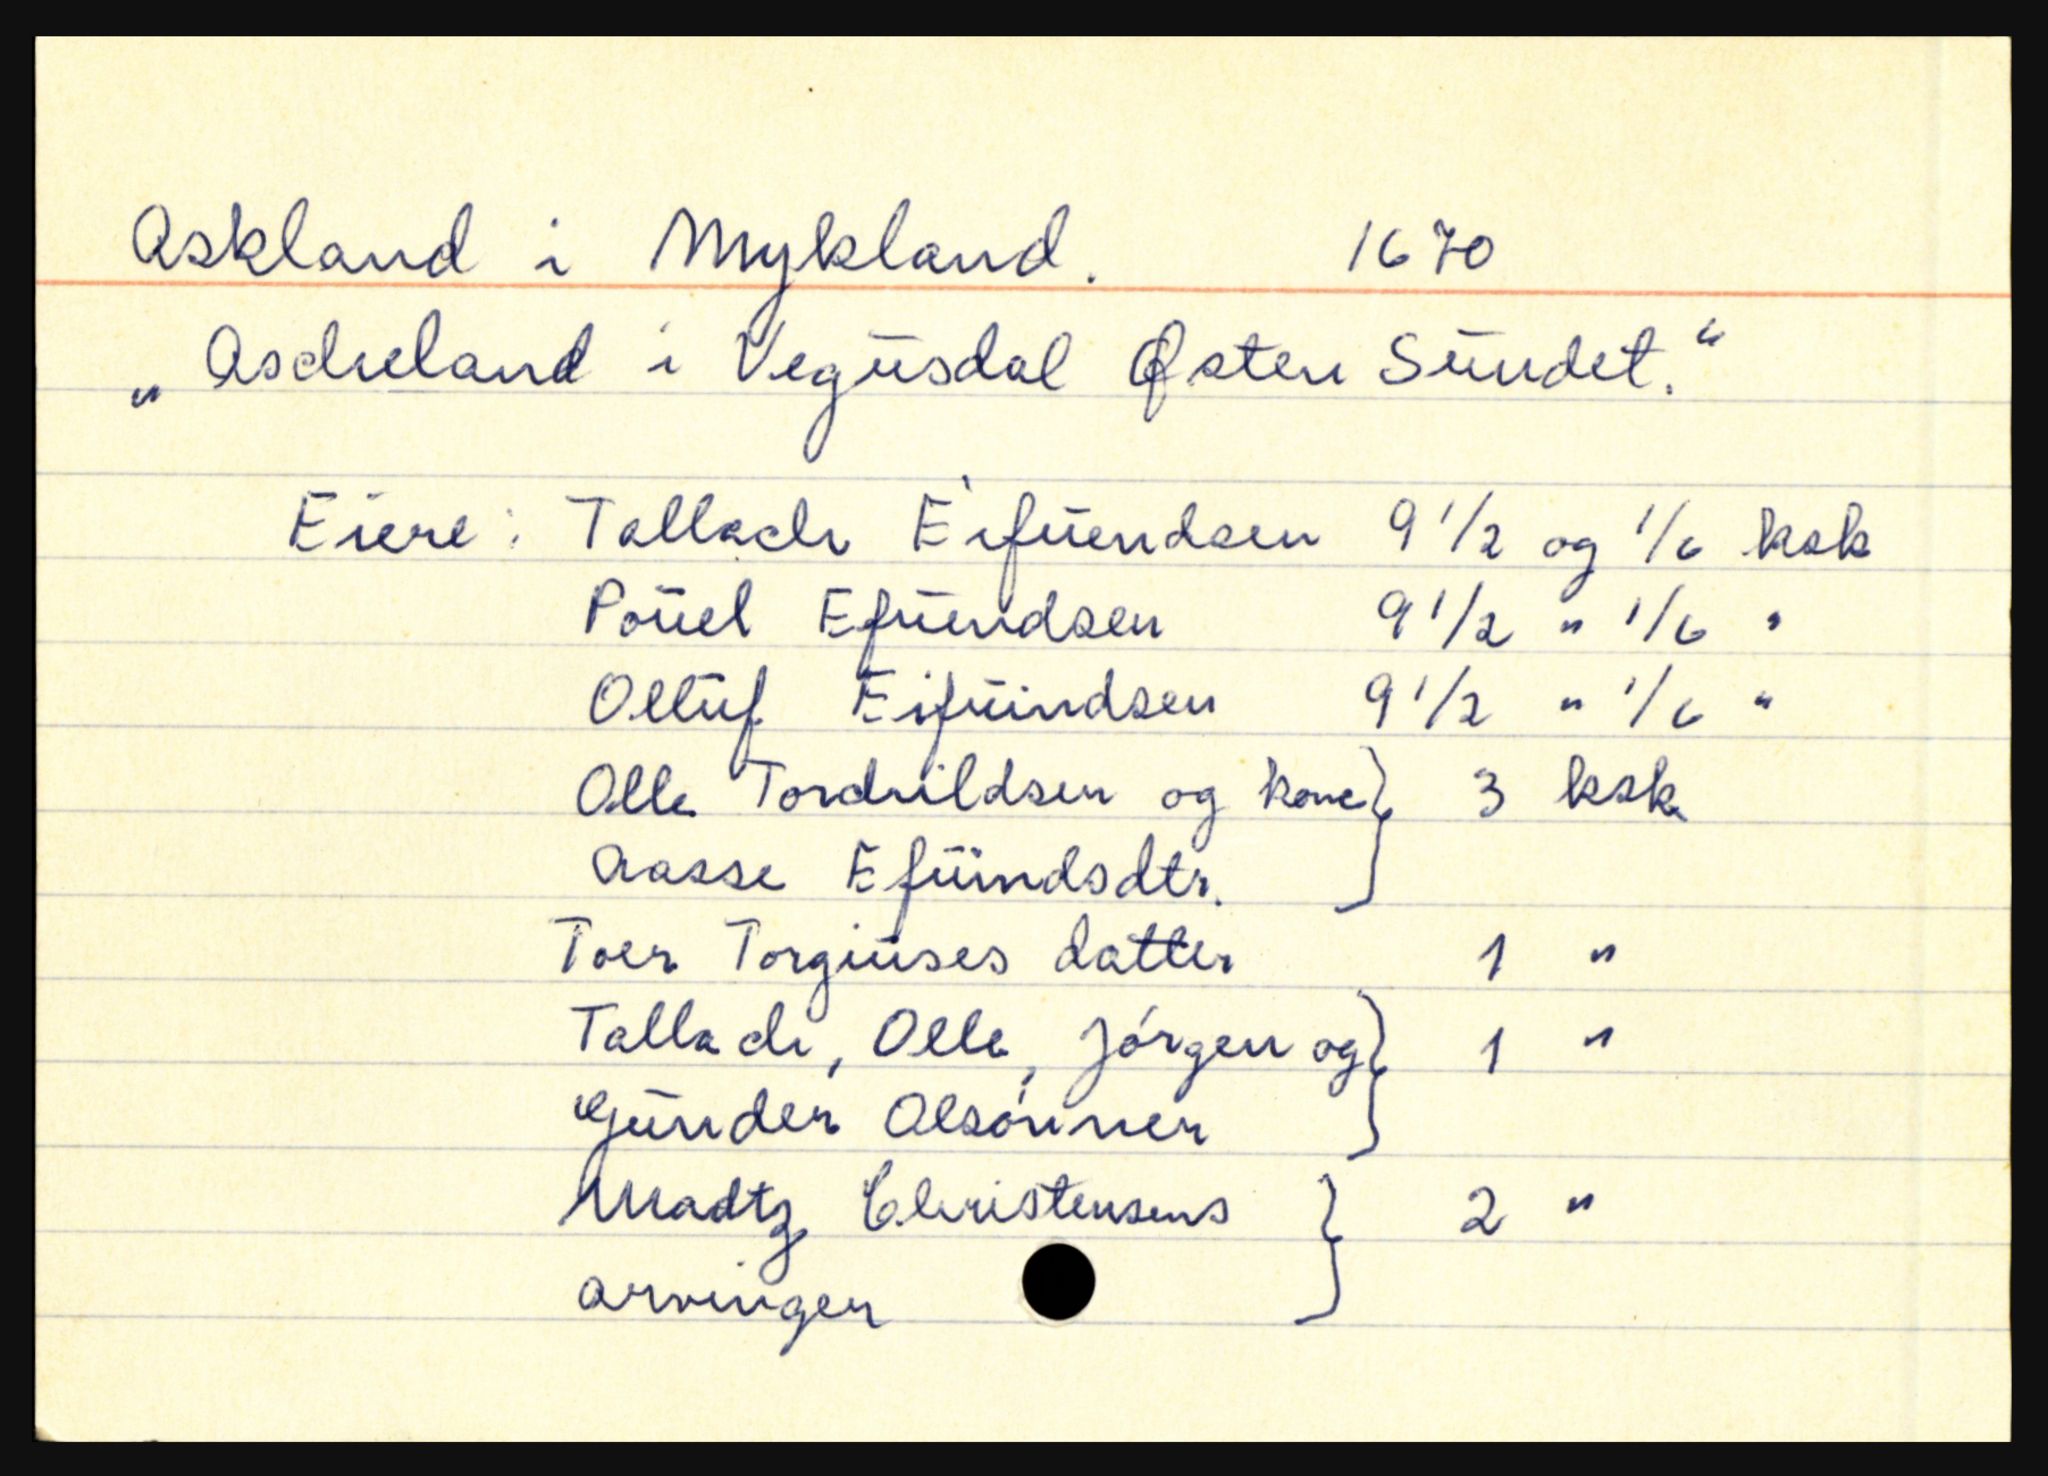 Askland i Mykland. 1670
„Ascheland i Vegusdal Østen Sundet.“
Eiere: Tallach Eifuendsen 9 1/2 og 1/6 ksk
Pouel Efuendsen 9 1/2 " 1/6 "
Olluf Eifuindsen 9 1/2 " 1/6 "
Olle Tordvildsen og kone } 3 ksk
Aasse Efuindsdtr.
Toer Torgiuses datter 1 "
Tallach, Olle, Jørgen og } 1 "
Gunder Olsønner
Madtz Christensens } 2 "
arvinger